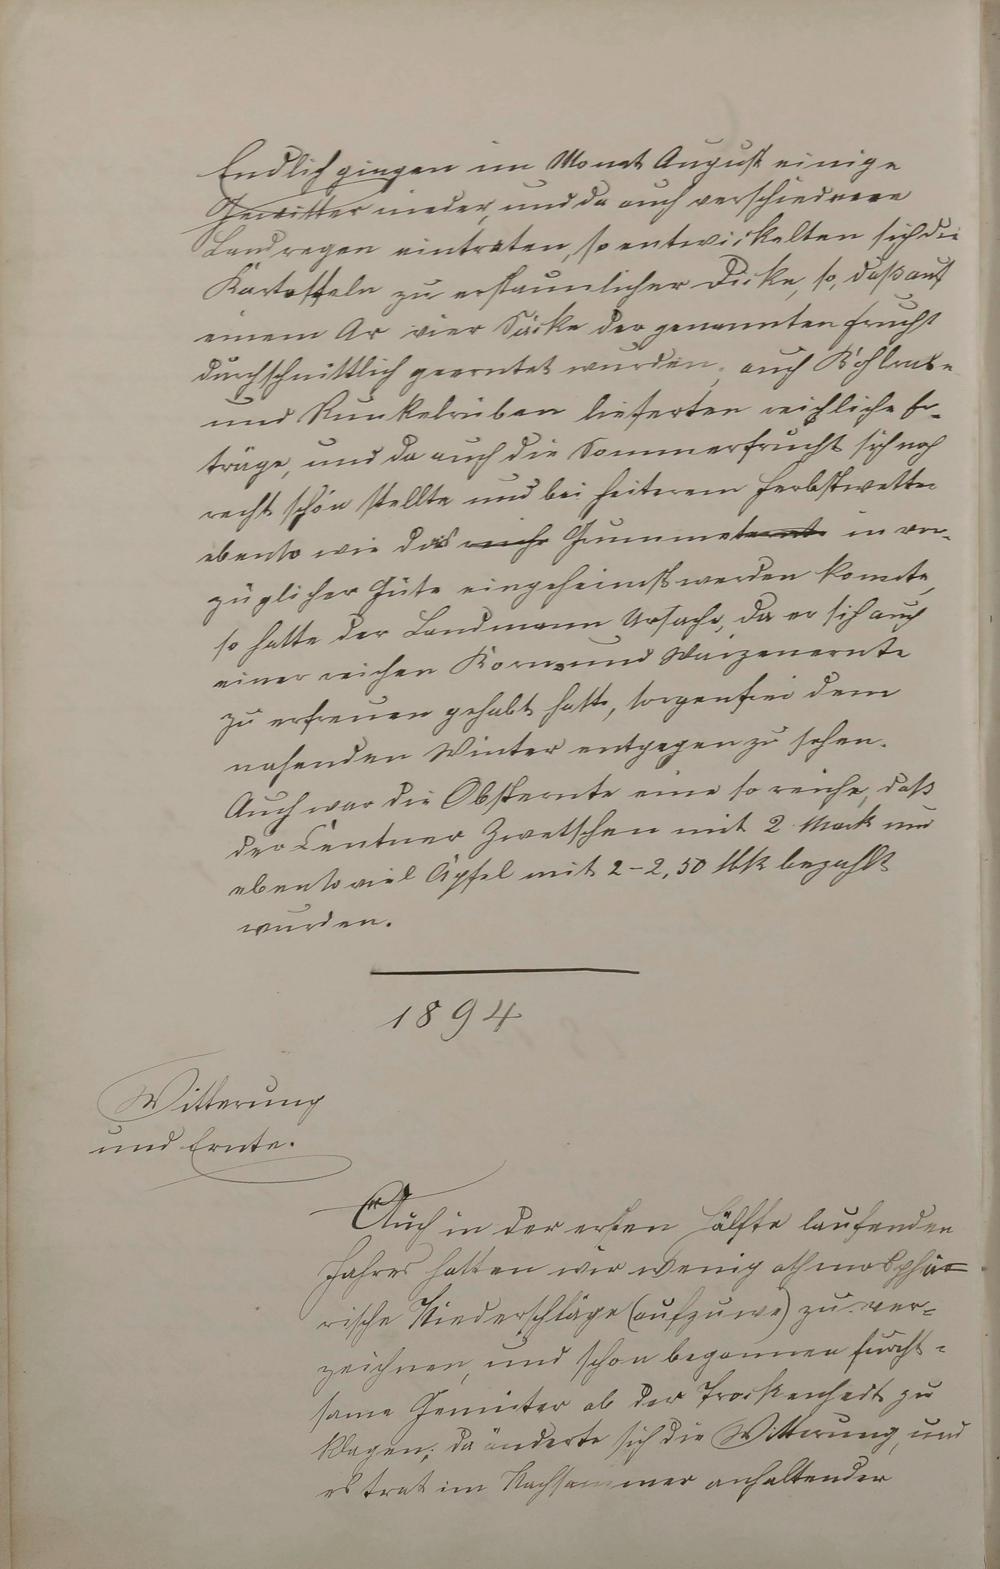 Endlich gingen im Monat August einige
Gewitter nieder, und da auch verschiedene
Landregen eintraten, so entwickelten sich die
Kartoffeln zu erstaunlicher Dicke, so, daß auf
einem Ar vier Säcke der genannten Frucht
durchschnittlich geerntet wurden; auch Kohlrabe
und Runkelrüben lieferten reichliche Er-
träge, und da auch die Sommerfrucht sich noch
recht schön stellte und bei heiterem Herbstwetter
ebenso wie das reiche Grummeternte in vor-
züglicher Güte eingeheimst werden konnte,
so hatte der Landmann Ursache, da er sich auch
einer reichen Korn- und Waizenernte
zu erfreuen gehabt hatte, sorgenfrei dem
nahenden Winter entgegen zu sehen.
Auch war die Obsternte eine so reiche, daß
der Centner Zwetschen mit 2 Mark und
ebensoviel Äpfel mit 2-2,50 Mk bezahlt
wurden.
1894
Witterung
und Ernte.
Auch in der ersten Hälfte laufenden
Jahres hatten wir wenig athmosphä-
rische Niederschläge (aufzuwe) zu ver-
zeichnen, und schon begannen furcht-
same Gemüter ob der Trockenheit zu
klagen; da änderte sich die Witterung, und
es trat im Nachsommer anhaltender